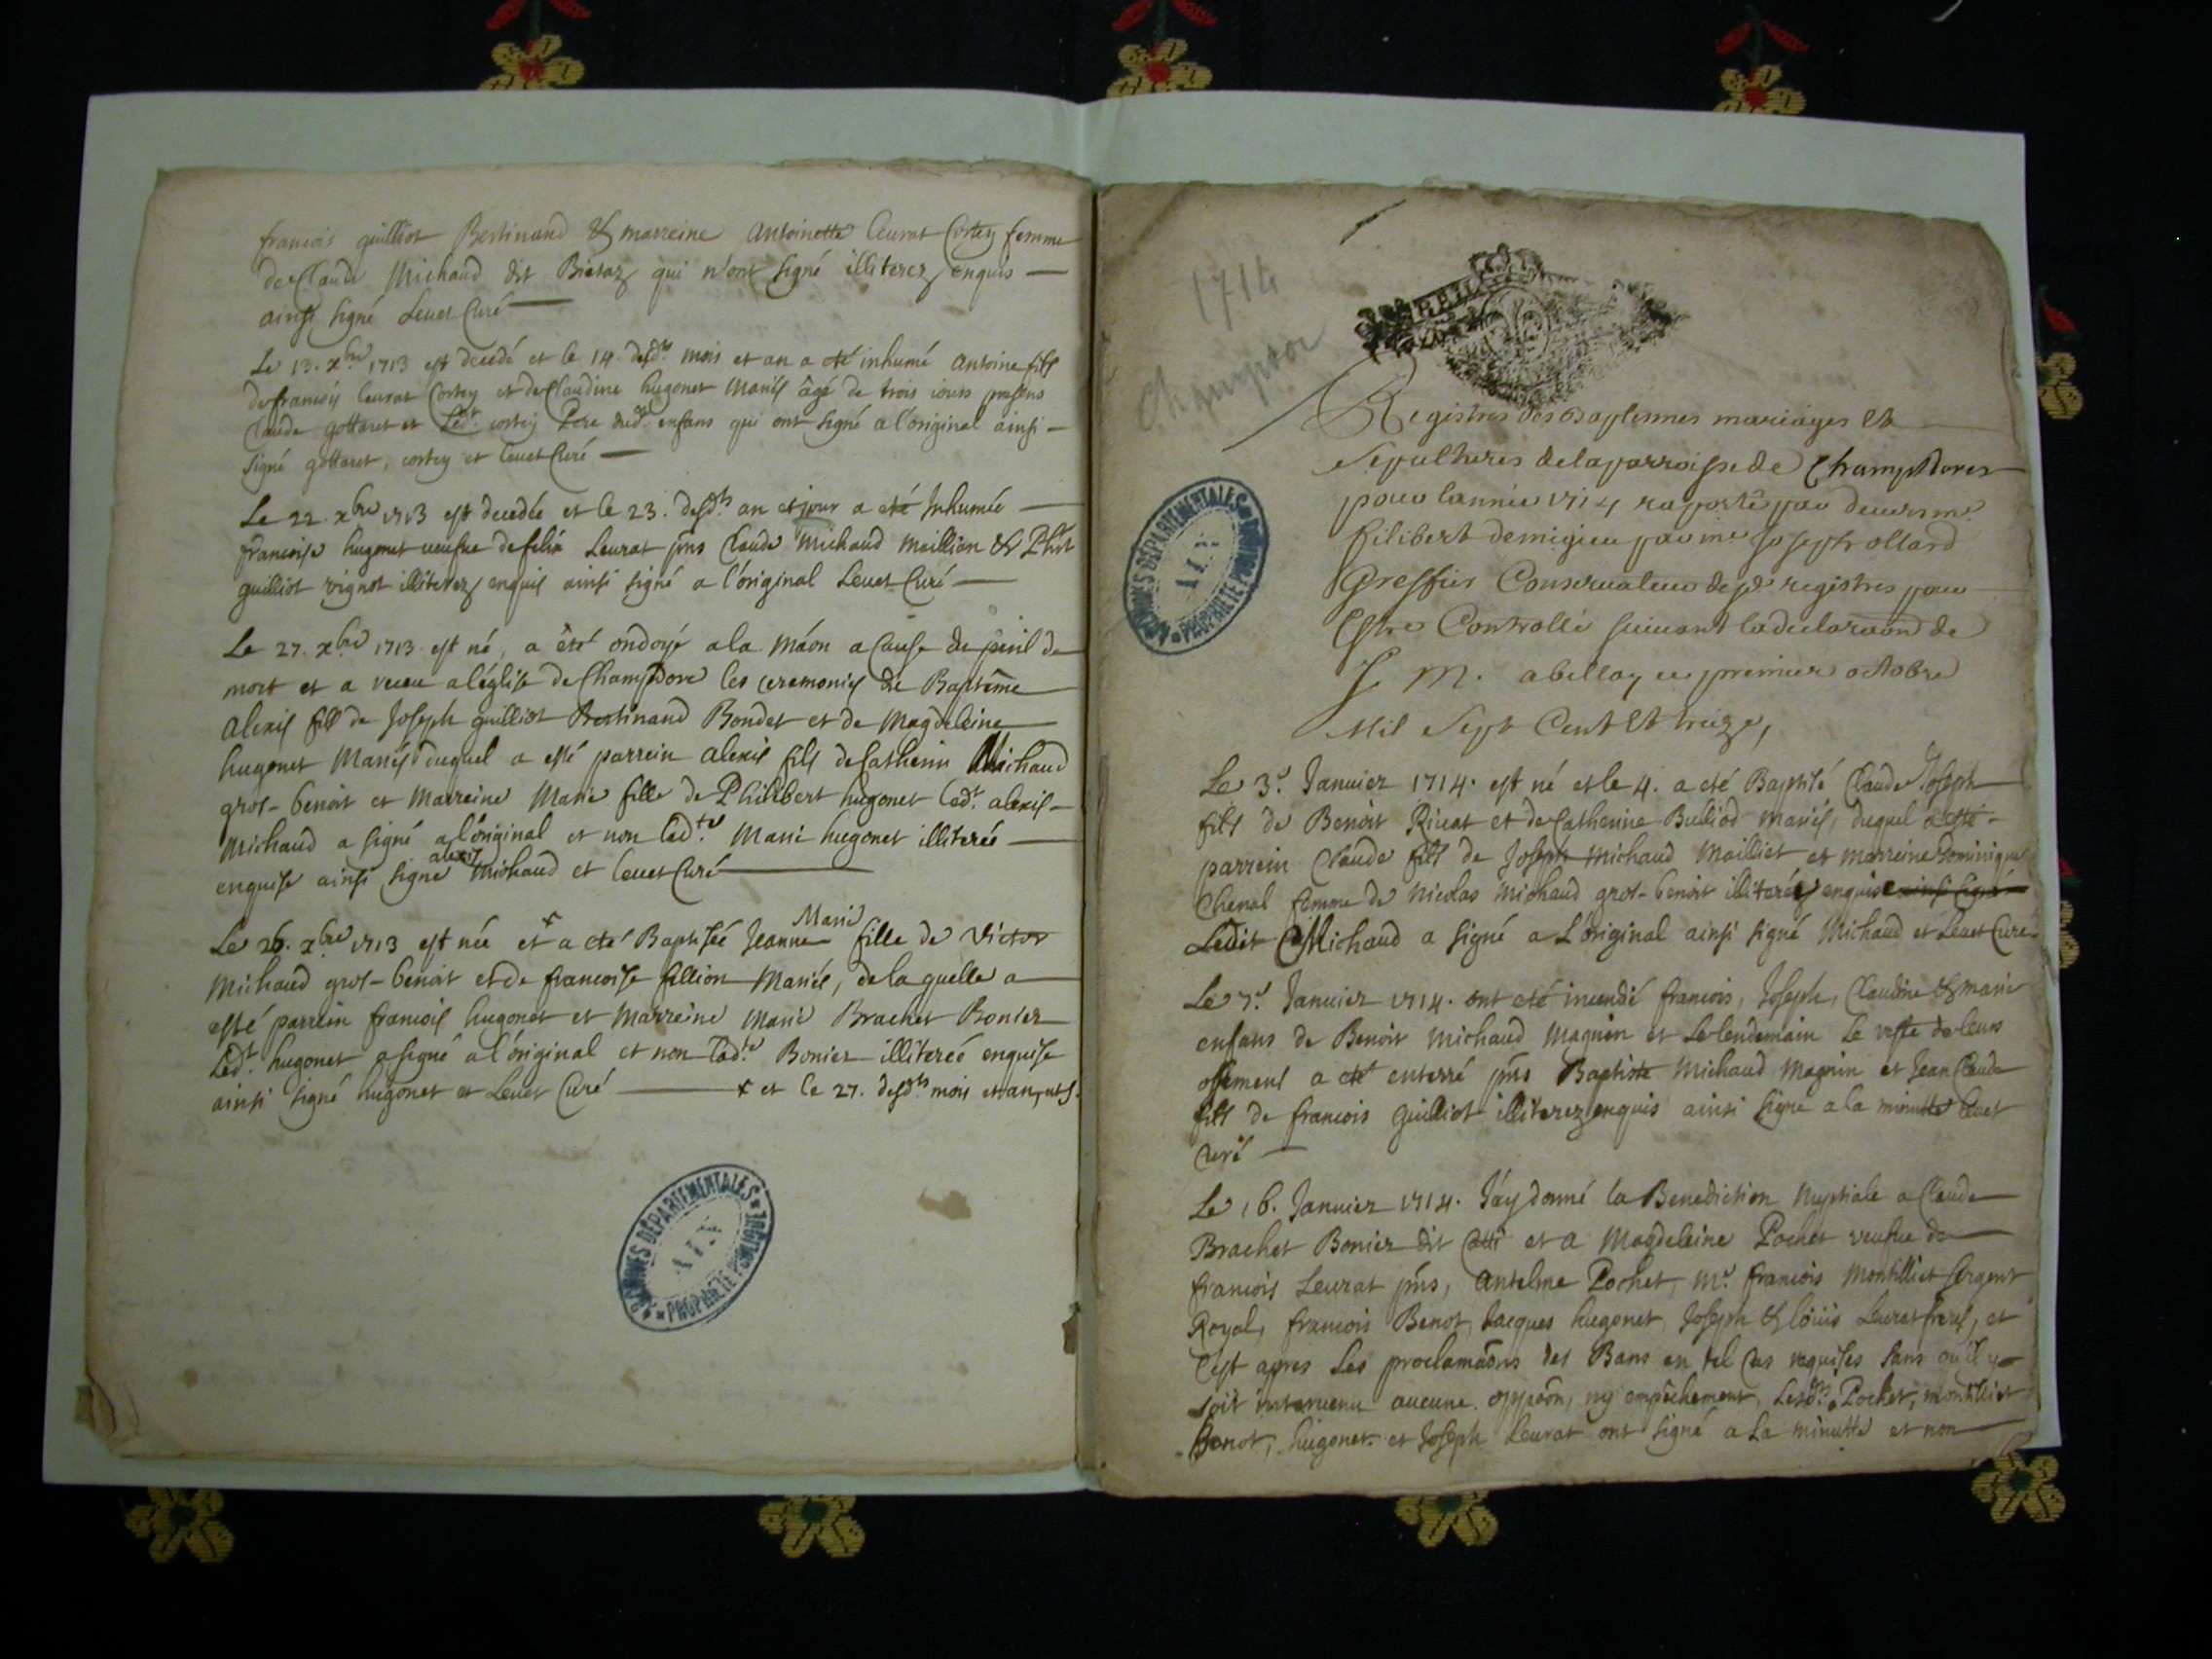 francois guilliot Bertinand & marreine Antoinette Leurat Cortey femme
de Claude Michaud dit Bietaz qui n'ont signé illiterez enquis
ainsi signé Leuet Curé
Le 13. xbre 1713 est decedé et le 14. desdts mois et an a eté inhumé antoine fils
de francois leurat Cortey et de Claudine hugonet Mariés âgé de trois iours presens
Claude gottaret et Ledt cortey Pere dudt enfans qui ont signé a l'original ainsi
signé gottaret, cortey et Leuet Curé
Le 22. xbre 1713 est decedée et le 23. desdts an et jour a eté Inhumée
francoise hugonet ueufue de felix Leurat pns Claude Michaud Maillian & Phit
guilliot vignot illiterez enquis ainsi signé a l'original Leuet Curé
Le 27. xbre 1713 est né, a êté ondoyé a la máon a Cause du peril de
mort et a receu a l'église de Champdore les ceremonies de Baptême
alexis fils de Joseph guilliot Bertinand Bondet et de Magdeleine
hugonet Mariés duquel a esté parrein alexis fils de Catherin Michaud
gros-benoit et Marreine Marie fille de Philibert hugonet ledt alexis
Michaud a signé a l'original et non ladte Marie hugonet illiterée
enquise ainsi signé alexis Michaud et Leuet Curé
Le 26. xbre 1713 est née et x a eté Baptisée Jeanne Marie fille de Victor
Michaud gros-benoit et de francoise fillion Mariés, de la quelle a
esté parrein francois hugonet et Marreine Marie Brachet Bonier
Ledt hugonet a signé a l'original et non ladte Bonier illiterée enquise
ainsi signé hugonet et Leuet Curé x et le 27. desdts mois et an,
ARCHIVES DÉPARTEMENTALES
AIN
PROPRIÉTÉ PUBLIQUE
1714
Champdor
Registres des Baptesmes mariages et
Sepultures de la parroisse de Champdores
pour lannée 1714 raporté par deuers mr
filibert demigieu par mr Joseph ollard
Greffier Conseruateur desds registres pour
Estre Controllé suiuant la declaraôn de
S. M. a bellay ce premier octobre
Mil Sept Cent et treize,
ARCHIVES DÉPARTEMENTALES
AIN
PROPRIÉTÉ PUBLIQUE
Le 3e Januier 1714. est né et le 4. a eté Baptisé Claude Joseph
fils de Benoit Riuat et de Catherine Bulliod mariés, duquel a esté
parrein Claude fils de Joseph Michaud Mailliet et marreine Dominique
Chenal femme de Nicolas Michaud gros-benoit illiterée enquise ainsi signé
Ledit Michaud a signé a L'original ainsi signé Michaud et Leuet Curé
Le 7e Januier 1714. ont eté incendié francois, Joseph, Claudine & marie
enfans de Benoit Michaud Magnin et Le lendemain Le reste de leurs
ossemens a eté enterré pns Baptiste Michaud Magnin et Jean Claude
fils de francois Guilliot illiterez enquis ainsi signé a la minutte Leuet
Curé
Le 16. Januier 1714. J'ay donné la Benediction Nuptiale a Claude
Brachet Bonier dit Catti et a Magdeleine Pochet veufue de
francois Leurat pns, Antelme Pochet, Mr francois Montilliet sergent
Royal, francois Benot, Jacques hugonet, Joseph & loüis Leurat freres, et
C'est apres Les proclamaôns des Bans en tel Cas requises sans qu'il y
soit interuenu aucune oppoôn, ny empêchement, Lesdts Pochet, montilliet
Benot, hugonet et Joseph Leurat ont signé a La minutte et non